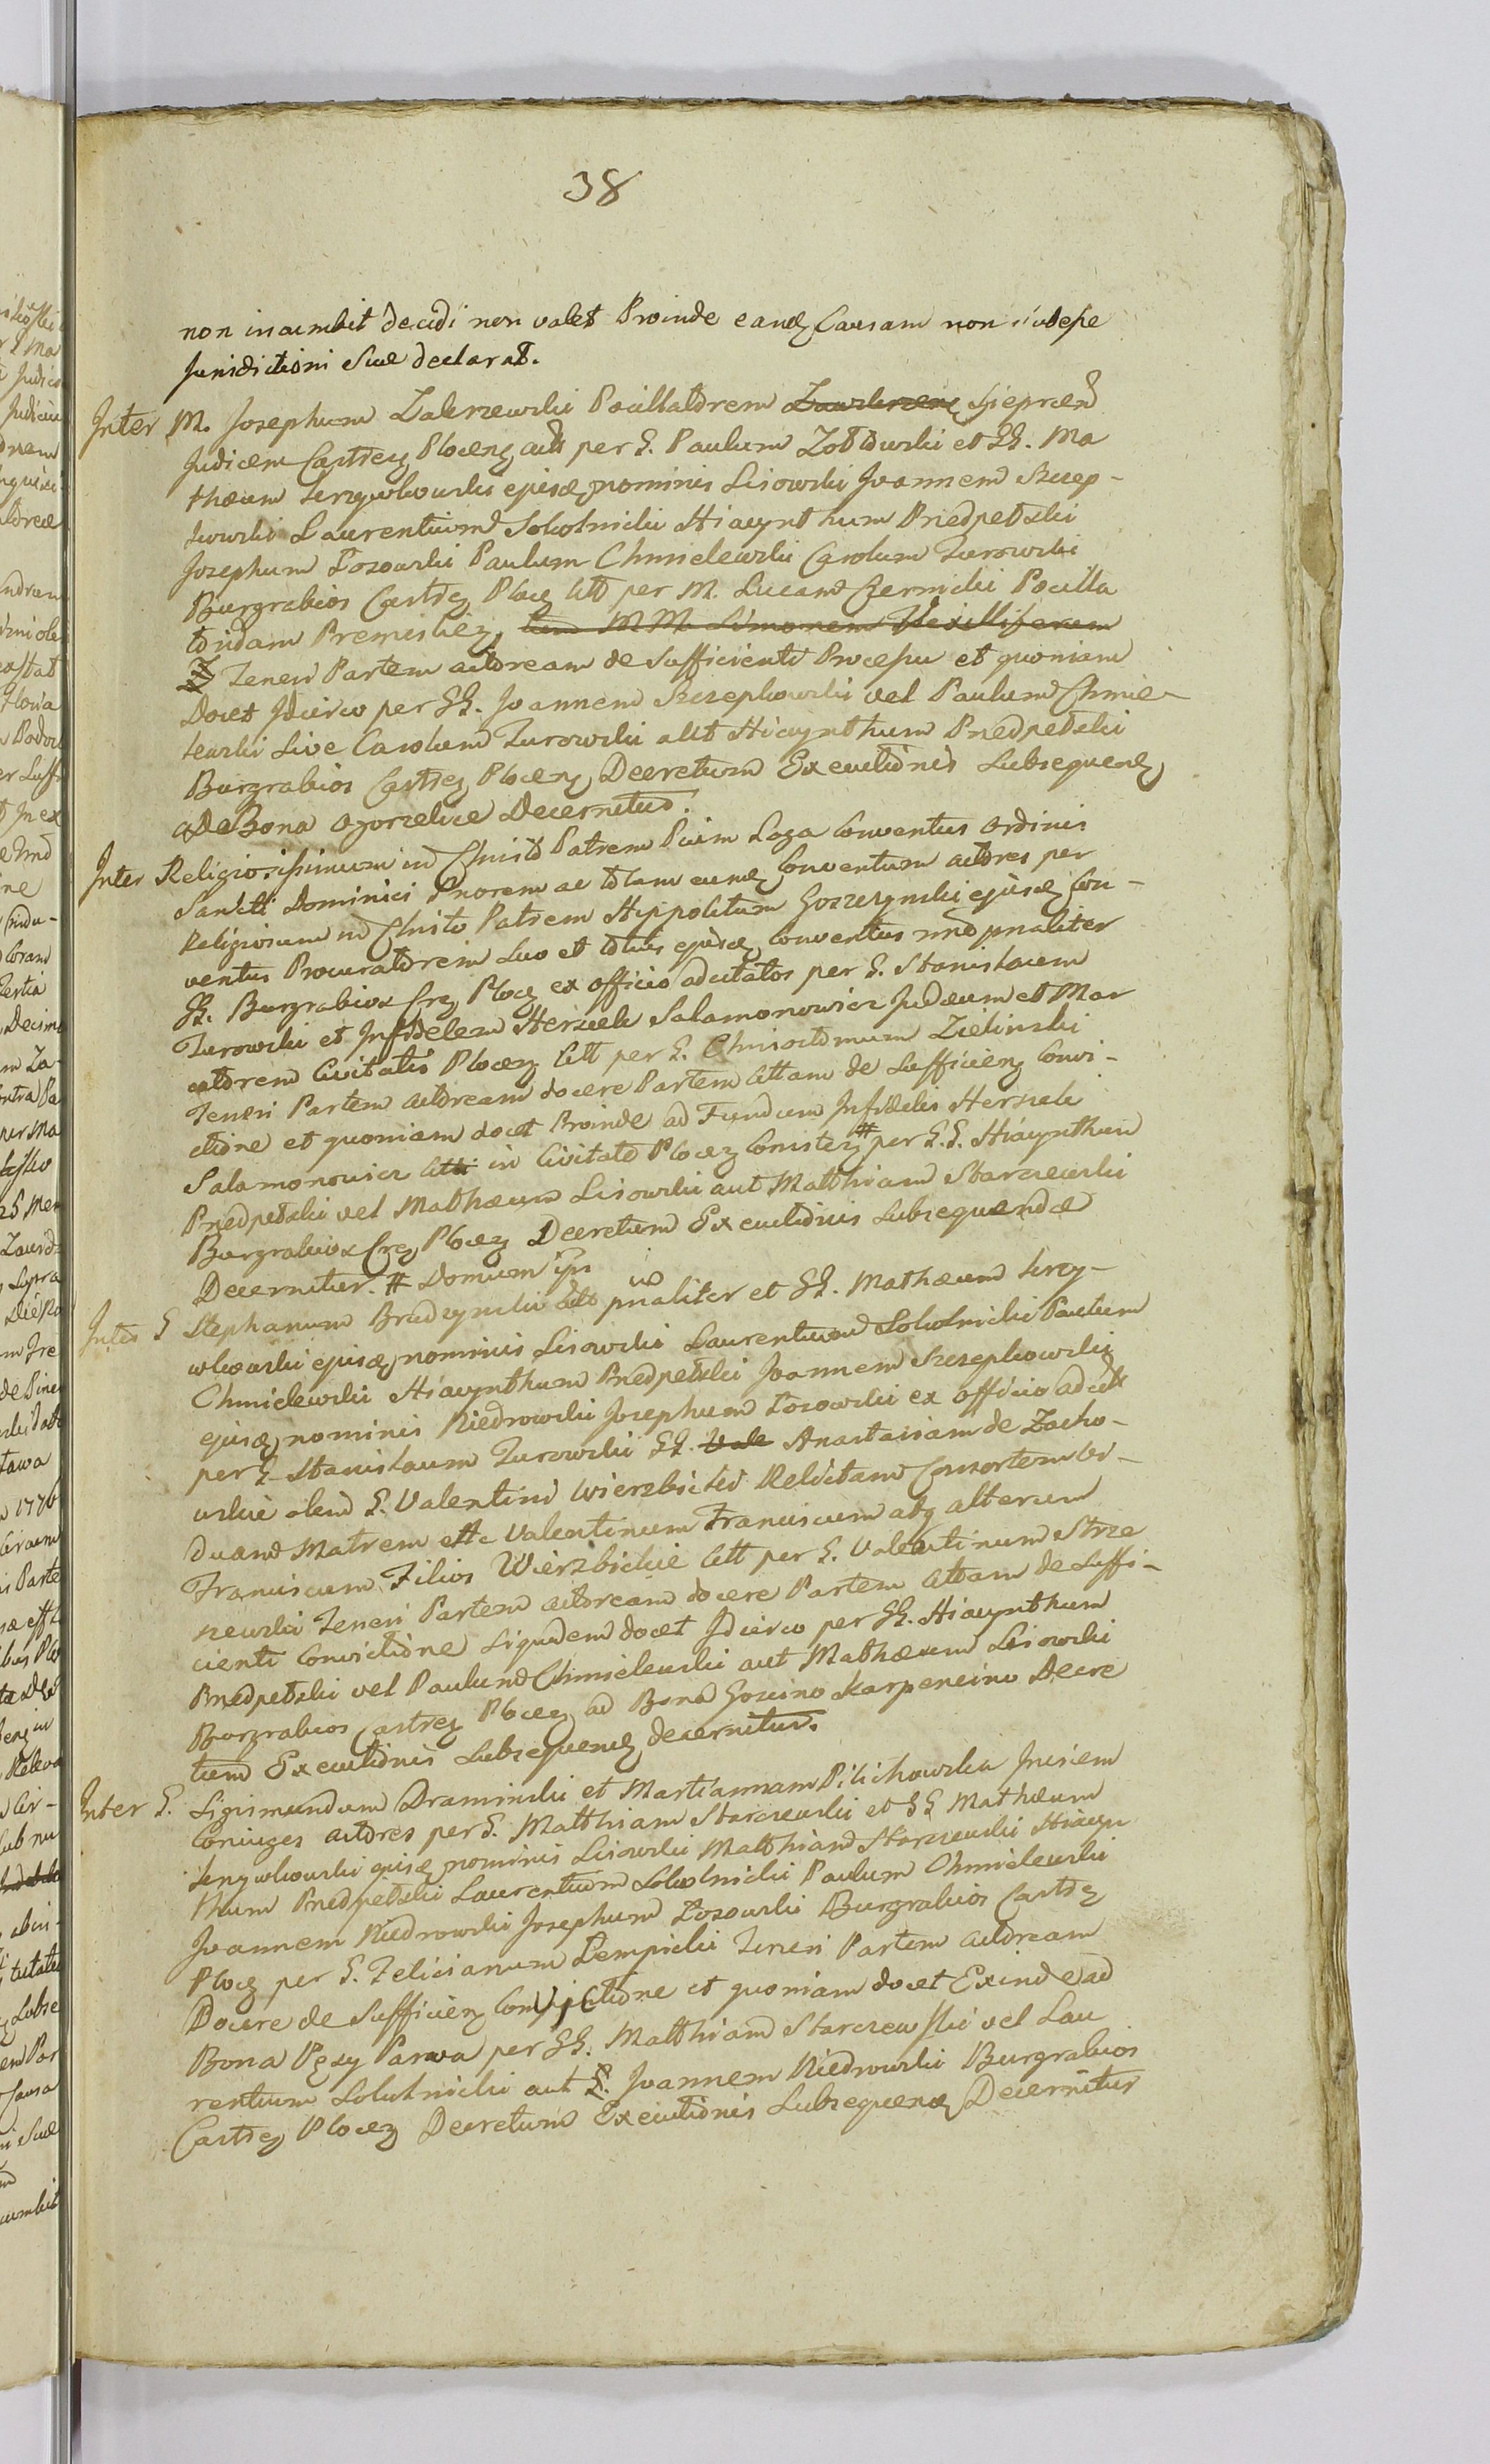 38
non incumbit decidi non valet Proinde eandę Causam non subesse
Jurisdictioni Suae declarat.
Inter M. Josephum Zakrzewski Pocillatorem Zawskrzenę Sieprcen
Judicem Castreń Plocenę act per G. Paulum Zottowski et GG. Ma
thaeum Jerzywkowski ejusdę nominis Lisowski Joannem Szczep-
kowski Laurentium Sokolnicki Hiacynthum Przedpełski
Josephum Łosowski Paulum Chmielewski Carolum Turowski
Burgrabios Castreń Płoceń Citt per M. Lucam Czernicki Pocilla
toridam Premislień, tum MM. Simonem Vexilliferum
Z Teneri Partem actoream de Sufficienti Processu et quoniam
Docet Idcirco per GG. Joannem Szczepkowski vel Paulum Chmie-
lewski Sive Carolum Turowski alit Hiacynthum Przedpełski
Burgrabios Castreń Plocenę Decretum Executionis Subsequenę
ad Bona Ogorzelice Decernitur.
Inter Religiosissimum in Christo Patrem Pium Loga Conventus Ordinis
Sancti Dominici Priorem ac totam eumdę Conventum actores per
Religiosum in Christo Patrem Hippolitum Goszczynski ejusdę Con-
ventus Procuratorem Suo et totius ejusdę Conventus nne pnaliter
GG. Burgrabios Creń Ploceń ex officio adcitatos per G. Stanislaum
Turowski et Infidelem Herszek Salamonowicz Judaeum et Mer
catorem Civitatis Plocenę Citt per G. Chrisostomum Zielinski
Teneri Partem actoream docere Partem Cittam de Sufficienę Convi-
ctione et quoniam docet Proinde ad Fundum Infidelis Herszek
Salamonowicz Citti in Civitate Ploceń Consisteń # per G.G. Hiacynthum
Przedpełski vel Mathaeum Lisowski aut Matthiam Starczewski
Burgrabios Creń Plocenę Decretum Executionis Subsequendae
Decernitur. # Domum ipsi
Inter G Stephanum Brudzynski Citt uo pnaliter et GG. Mathaeum Jerzy-
wkowski ejusdę nominis Lisowski Laurentium Sokolnicki Paulum
Chmielewski Hiacynthum Przedpełski Joannem Szczepkowski
ejusdę nominis Niedrowski Josephum Łosowski ex officio adcitt
per G. Stanislaum Turowski GG. Vale Anastasiam de Zacho-
wskie olim G. Valentini Wierzbicki Relictam Consortem Vi-
duam Matrem etc Valentinum Franciscum atq alterum
Franciscum Filios Wierzbickie Citt per G. Valentinum Strze
zewski Teneri Partem actoream docere Partem Cittam de Suffi-
cienti Convictione Siquidem docet Idcirco per GG. Hiacynthum
Przedpełski vel Paulum Chmielewski aut Mathaeum Lisowski
Burgrabios Castreń Ploceń ad Bona Goscino Karpeneino Decre
tum Executionis Subsequenę decernitur.
Inter G. Sigismundum Draminski et Mariannam Pilichowska Insiem
Coniuges actores per G. Matthiam Starczewski et GG Mathaeum
Jerzywkowski ejusdę nominis Lisowski Matthiam Starczewski Hiacyn
thum Przedpełski Laurentium Sokolnicki Paulum Chmielewski
Joannem Niedrowski Josephum Łosowski Burgrabios Castreń
Ploceń per G. Felicianum Dempicki Teneri Partem actoream
Docere de Sufficienę Convictione et quoniam docet Exinde ad
Bona Pęsy Parva per GG. Matthiam Starczewski vel Lau
rentium Sokolnicki aut G. Joannem Niedrowski Burgrabios
Castreń Ploceń Decretum Executionis Subsequendę Decernitur